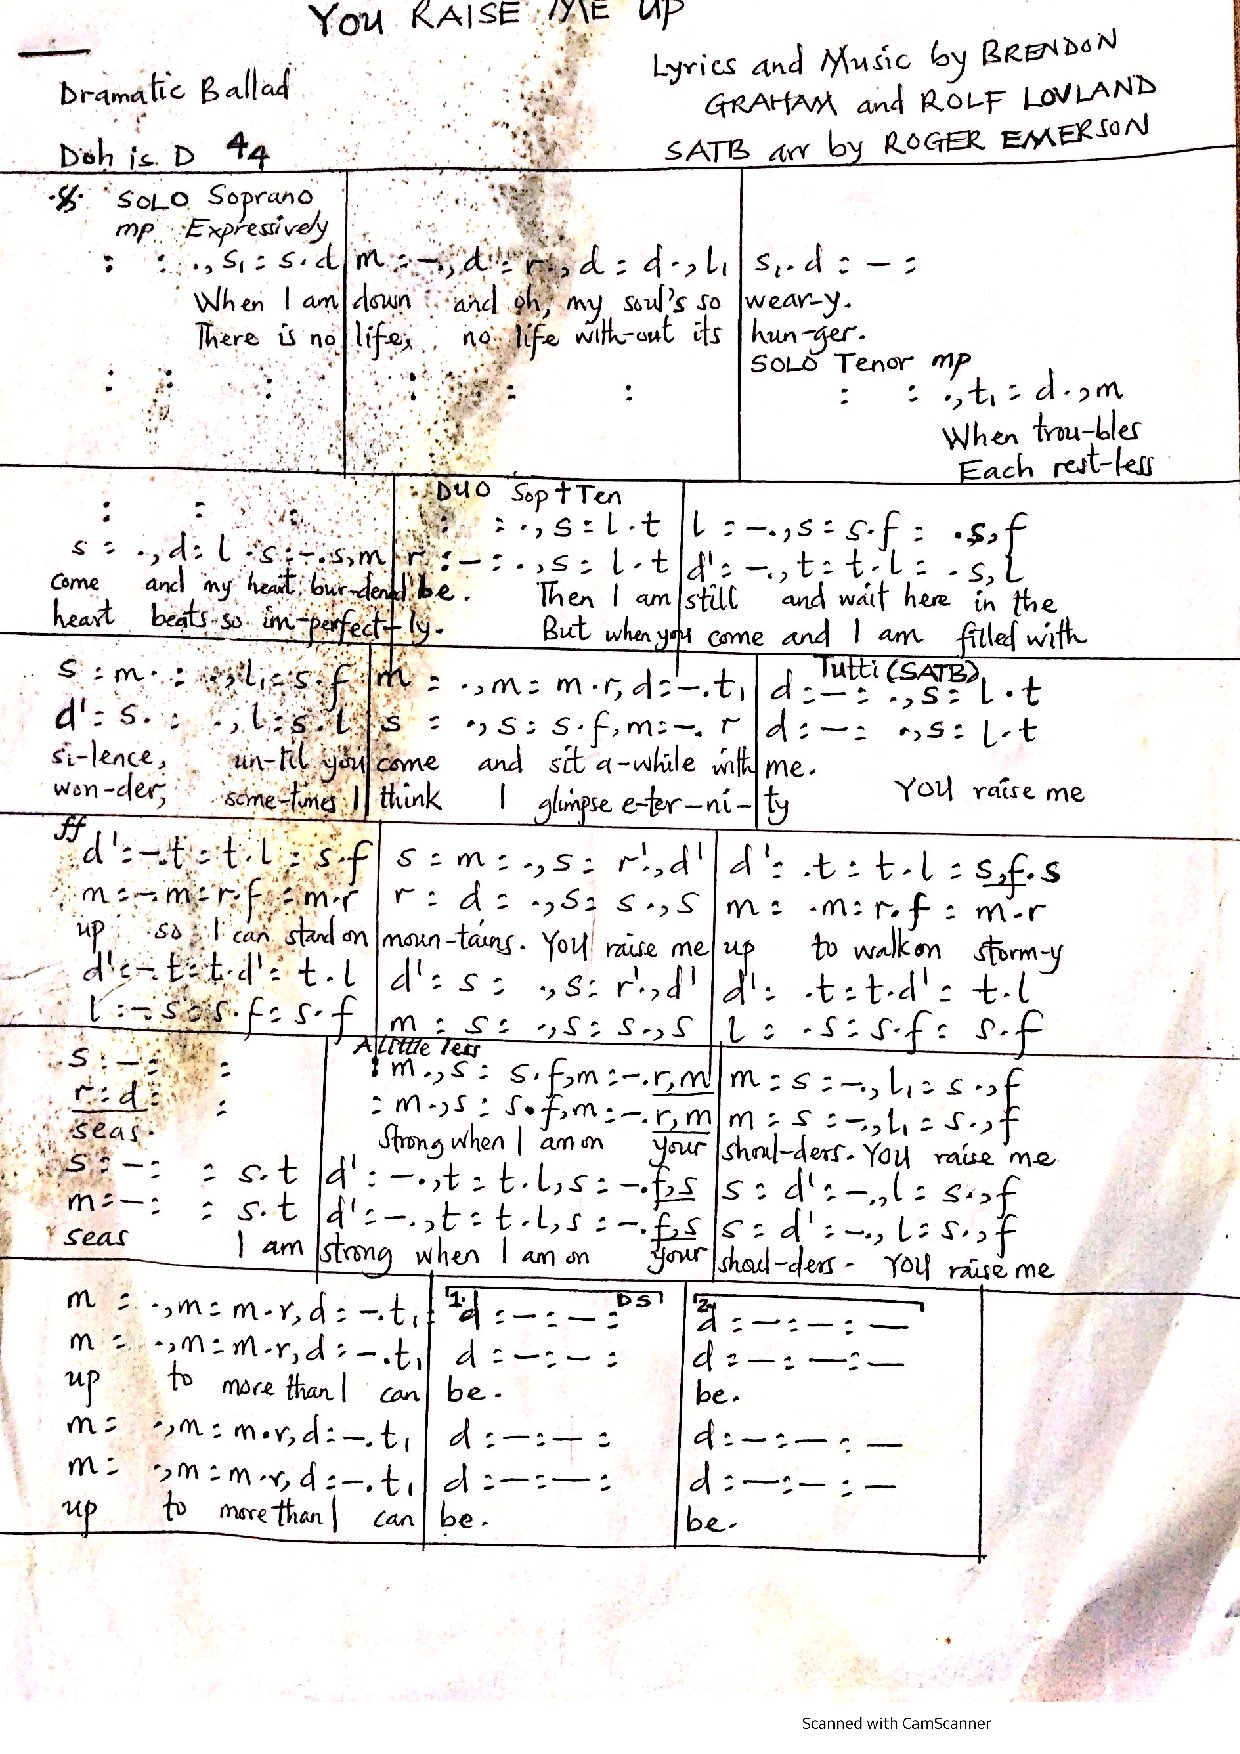 YOU RAISE ME UP
Dramatic Ballad
Lyrics and Music by BRENDON
GRAHAM and ROLF LOVLAND
Doh is D 44
SATB arr by ROGER EMERSON
SOLO Soprano
mp Expressively
: : ., s₁ : s . d | m : -., d : r ., d : d ., l₁ | s₁ . d : - :
When I am down and oh, my soul's so wear-y.
There is no life, no life with-out its hun-ger.
SOLO Tenor mp
: : ., t₁ : d ., m
When trou-bles
Each rest-less
DUO Sop + Ten
: : : | : : ., s : l . t | l : -., s : s . f : . s, f
s : ., d : l . s : -. s, m | r : - : ., s : l . t | d' : -., t : t . l : . s, l
come and my heart bur-dened be. Then I am still and wait here in the
heart beats so im-perfect-ly. But when you come and I am filled with
Tutti (SATB)
s : m . : ., l₁ : s . f | m : ., m : m . r, d : -. t₁ | d : - : ., s : l . t
d' : s . : ., l : s . l | s : ., s : s . f, m : -. r | d : - : ., s : l . t
si-lence, un-til you come and sit a-while with me.
won-der, some-times I think I glimpse e-ter-ni-ty
YOU raise me
ff
d' : -. t : t . l : s . f | s : m : ., s : r' ., d' | d' : . t : t . l : s, f . s
m : -. m : r . f : m . r | r : d : ., s : s ., s | m : . m : r . f : m . r
up so I can stand on moun-tains. YOU raise me up to walk on storm-y
d' : -. t : t . d' : t . l | d' : s : ., s : r' ., d' | d' : . t : t . d' : t . l
l : -. s : s . f : s . f | m : s : ., s : s ., s | l : . s : s . f : s . f
A little less
s : - : : | : m ., s : s . f, m : -. r, m | m : s : -., l₁ : s ., f
r : d : : | : m ., s : s . f, m : -. r, m | m : s : -., l₁ : s ., f
seas. Strong when I am on your shoul-ders. YOU raise me
s : - : : s . t | d' : -., t : t . l, s : -. f, s | s : d' : -., l : s ., f
m : - : : s . t | d' : -., t : t . l, s : -. f, s | s : d' : -., l : s ., f
seas I am strong when I am on your shoul-ders. YOU raise me
m : ., m : m . r, d : -. t₁ | 1. d : - : - : DS | 2. d : - : - : -
m : ., m : m . r, d : -. t₁ | d : - : - : | d : - : - : -
up to more than I can be. be.
m : ., m : m . r, d : -. t₁ | d : - : - : | d : - : - : -
m : ., m : m . r, d : -. t₁ | d : - : - : | d : - : - : -
up to more than I can be. be.
Scanned with CamScanner